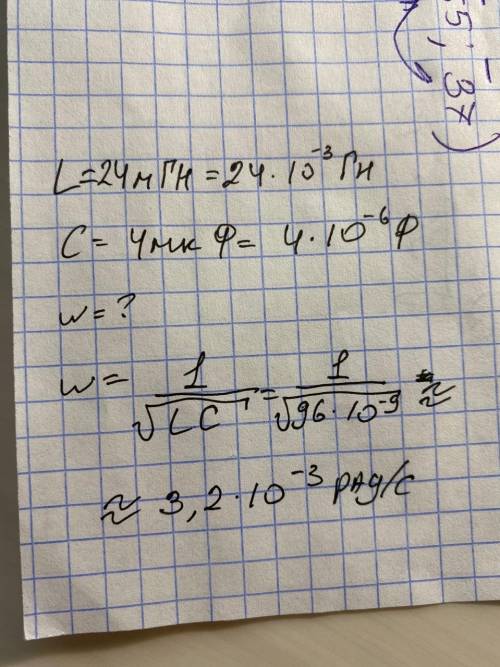 5; 37)
L=24мГн=24·10⁻³Гн
C= 4мкФ= 4·10⁻⁶Ф
w=?
w= 1/√LC = 1/√96·10⁻⁹ ≈
≈ 3,2·10⁻³ рад/с